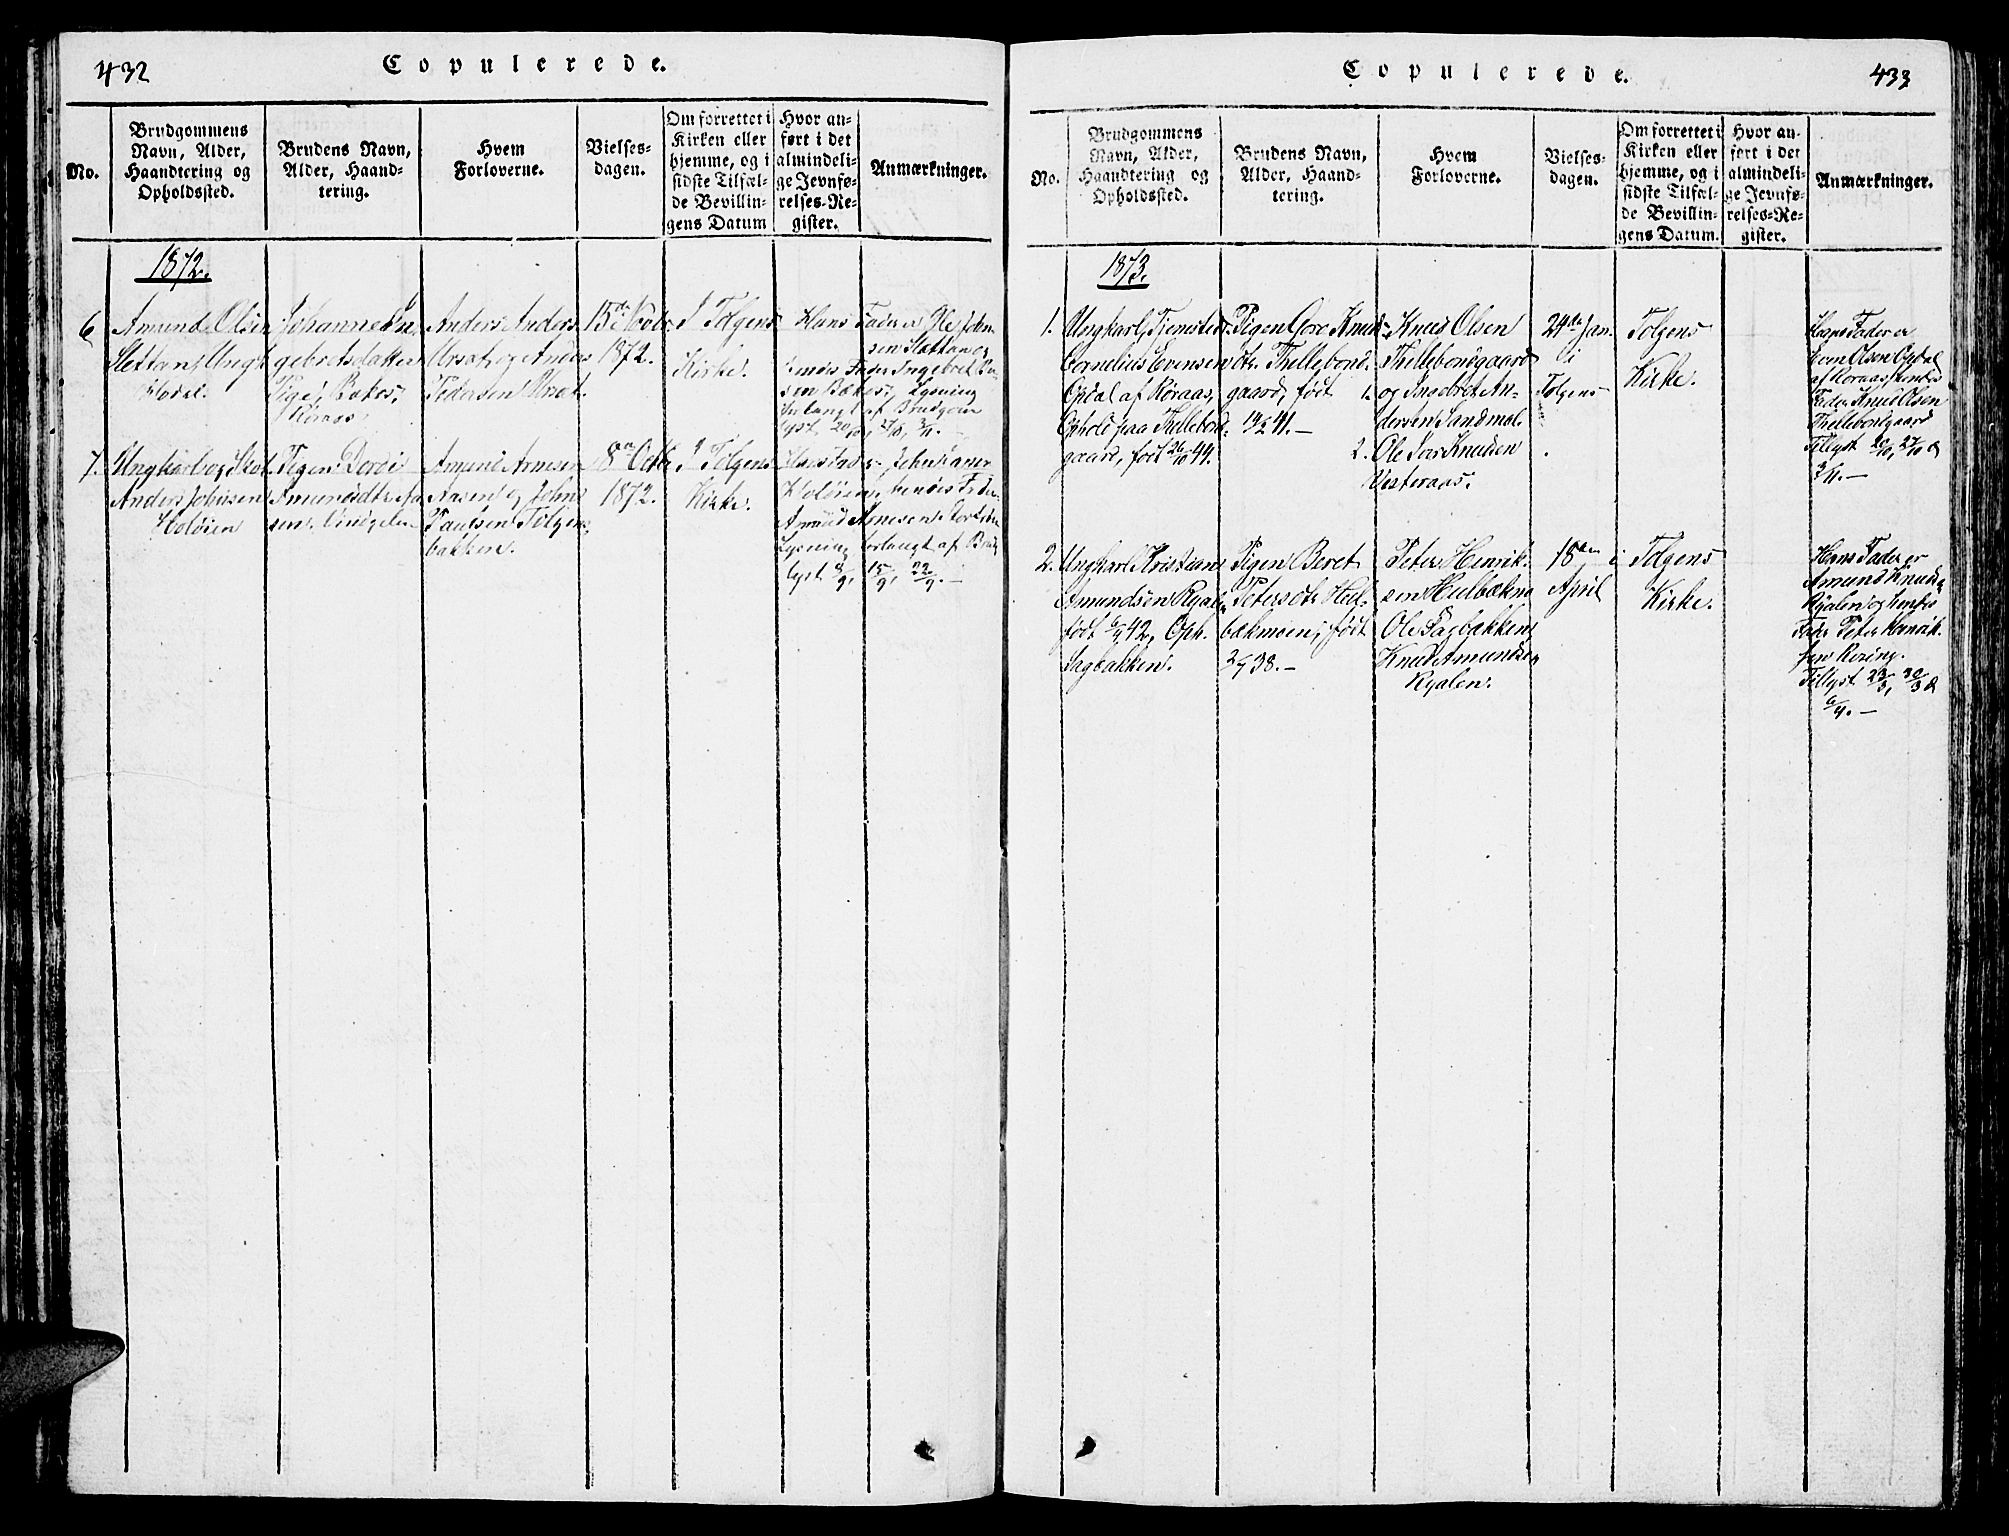 432
Copulerede.
No.
Brudgommens
Navn, Alder,
Haandtering og
Opholdssted.
Brudens Navn,
Alder, Haand-
tering.
Hvem
Forloverne.
Vielses-
dagen.
Om forrettet i
Kirken eller
hjemme, og i
sidste Tilfæl-
de Bevillin-
gens Datum
Hvor an-
ført i det
almindeli-
ge Jevnfø-
relses-Re-
gister.
Anmærkninger.
1872.
6
Amund Olsen
Slettan, Ungk
Hodal.
Johanne In
gebretsdatter
Pige, Bakos,
Röraas
Anders Anders
Ursat og Anders
Pedersen Ursat.
15de Novbr
1872.
I Tolgens
Kirke.
Hans Fader er Ole John
sen Slettan og
Fader Ingebret
Lysning
forlangt af Brudgom
lyst 20/10, 27/10, 3/11.
7.
Ungkarl og
Anders Johnsen
Holöien
Pigen Dordi
Amundsdtr Aa
sen
Amund Arnesen
Aasen og John
Paulsen Tolgens
bakken.
8de Octbr
1872.
I Tolgens
Kirke.
John
Holöien, hendes Fader
Amund Arnesen
Lysning forlangt af Brud
lyst 8/9, 15/9, 22/9.
433
Copulerede.
No.
Brudgommens
Navn, Alder,
Haandtering og
Opholdssted.
Brudens Navn,
Alder, Haand-
tering.
Hvem
Forloverne.
Vielses-
dagen.
Om forrettet i
Kirken eller
hjemme, og i
sidste Tilfæl-
de Bevillin-
gens Datum.
Hvor an-
ført i det
almindeli-
ge Jevnfø-
relses-Re-
gister.
Anmærkninger.
1873.
1.
Ungkarl, Tjenstedr.
Cornelius Evensen
Opdal af Röraas,
Ophold paa Thellebond-
gaard, født 26/10 44.
Pigen Goro Knuds-
dtr. Thellebond-
gaard, født
14/5 41.
1.
Knud Olsen
Thellebondgaard
og Ingebret An-
dersen Sandmal.
2. Ole Knudsen
Vesteraas.
24de Jan.
i
Tolgens
Tolgens
Kirke.
Hans Fader er
Even Olsen Opdal
af Röraas, hendes
Fader Knud Olsen
Thellebondgaard
Tillyst 20/10, 27/10 &
3/11.
2.
Ungkarl Kristian
Amundsen Ryalen
født 6/4 42, Oph.
Sagbakken.
Pigen Beret
Petersdtr Hul-
bækmoen, født
38.
Peter Henrik-
sen Hulbækmo
Ole Sagbakken,
Knud Amundsen
Ryalen.
18den
April
i Tolgens
Kirke.
Hans Fader er
Amund Knuds.
Ryalen og hendes
Fader Peter Henrik-
sen
Tillyst 23/3, 30/3 &
6/4.